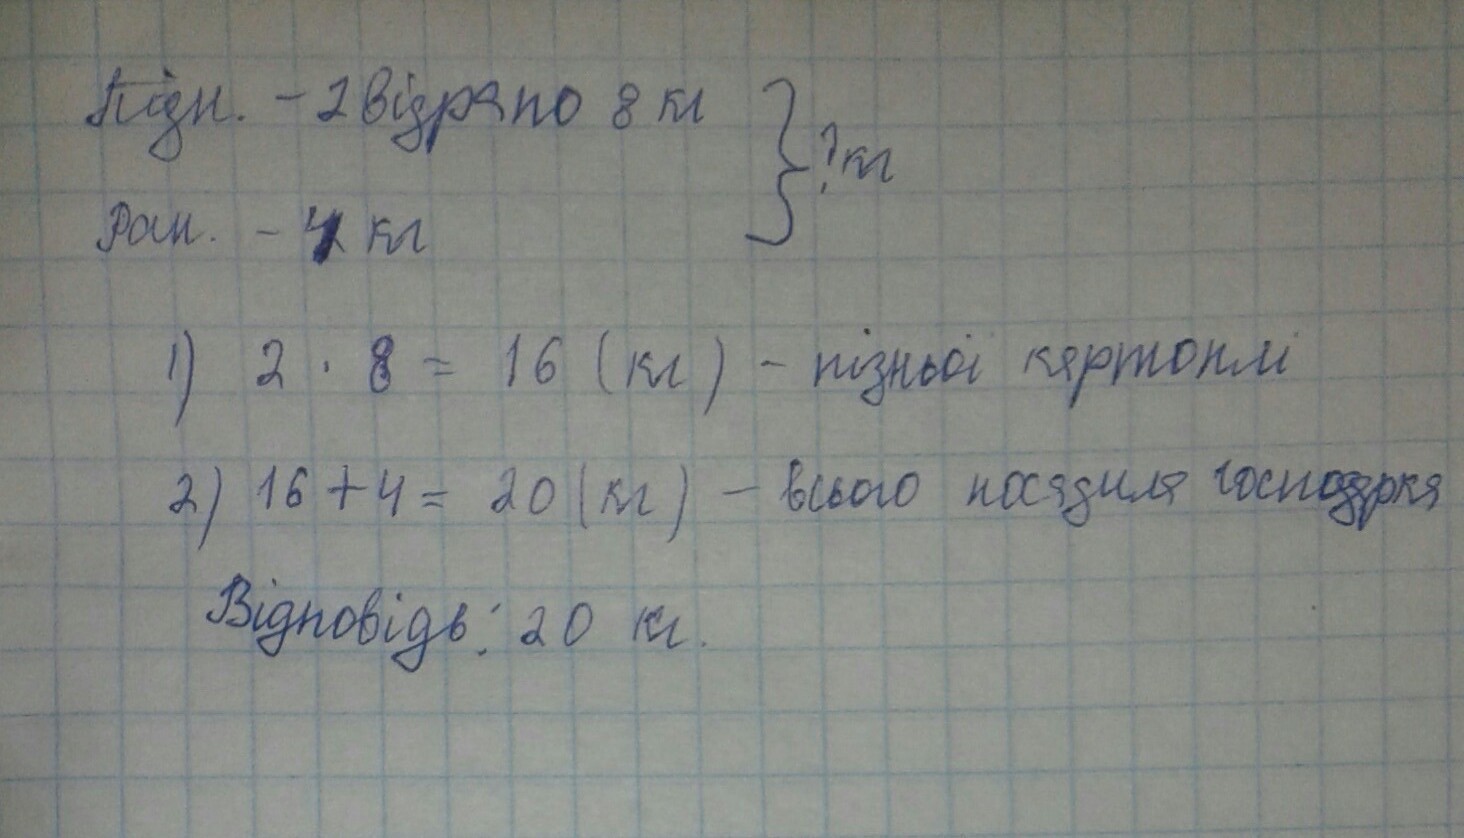 Пізн. - 2 відра по 8 кг
? кг
Ран. - 4 кг
1) 2 · 8 = 16 (кг) - пізньої картоплі
2) 16 + 4 = 20 (кг) - всього посадила господарка
Відповідь: 20 кг.